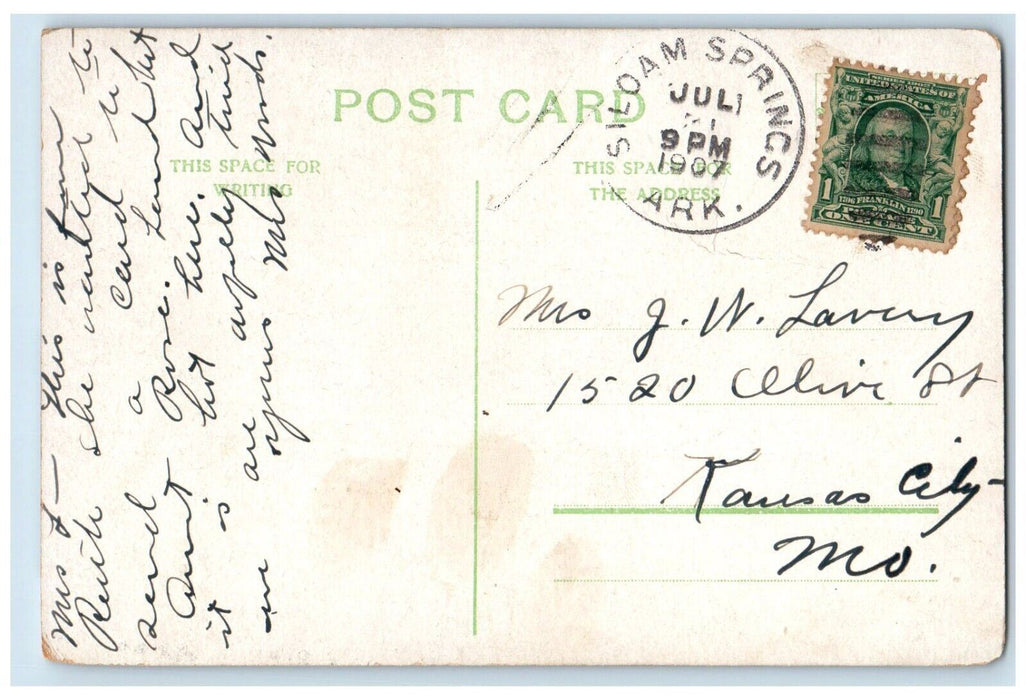 POST CARD
THIS SPACE FOR
WRITING
THIS SPACE FOR
THE ADDRESS
SILOAM SPRINGS
JUL
9 PM
1907
ARK.
SERIES 1902
UNITED STATES OF
AMERICA
1 1706 FRANKLIN 1790 1
POSTAGE
ONE CENT
Mrs J. W. Lavery
1520 Olive St
Kansas City
Mo.
This is from
Ruth she wanted to
send a card to
Aunt Rose. Land but
it is hot here. And
we are awfully tired
Mrs Woods.